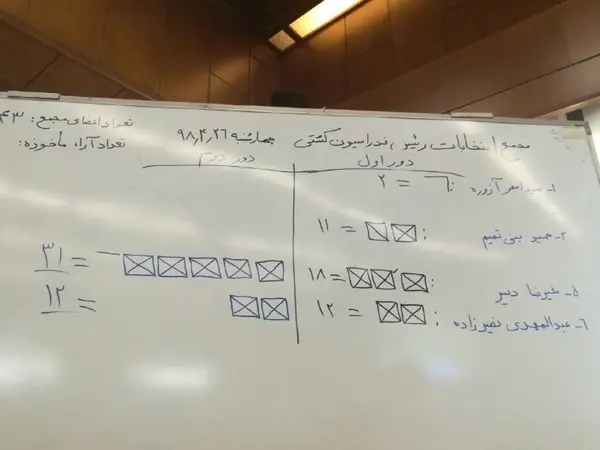 مجمع انتخابات رئیس فدراسیون کشتی چهارشنبه ۹۸٫۴٫۲۶
تعداد اعضای مجمع: ۴۳
تعداد آراء مأخوذه:
دور اول
دور دوم
۱- سید اصغر آزوره : = ۲
۲- حمید بنی تمیم : = ۱۱
۵- علیرضا دبیر : = ۱۸
= ۳۱
۶- عبدالمهدی نصیرزاده : = ۱۲
= ۱۲